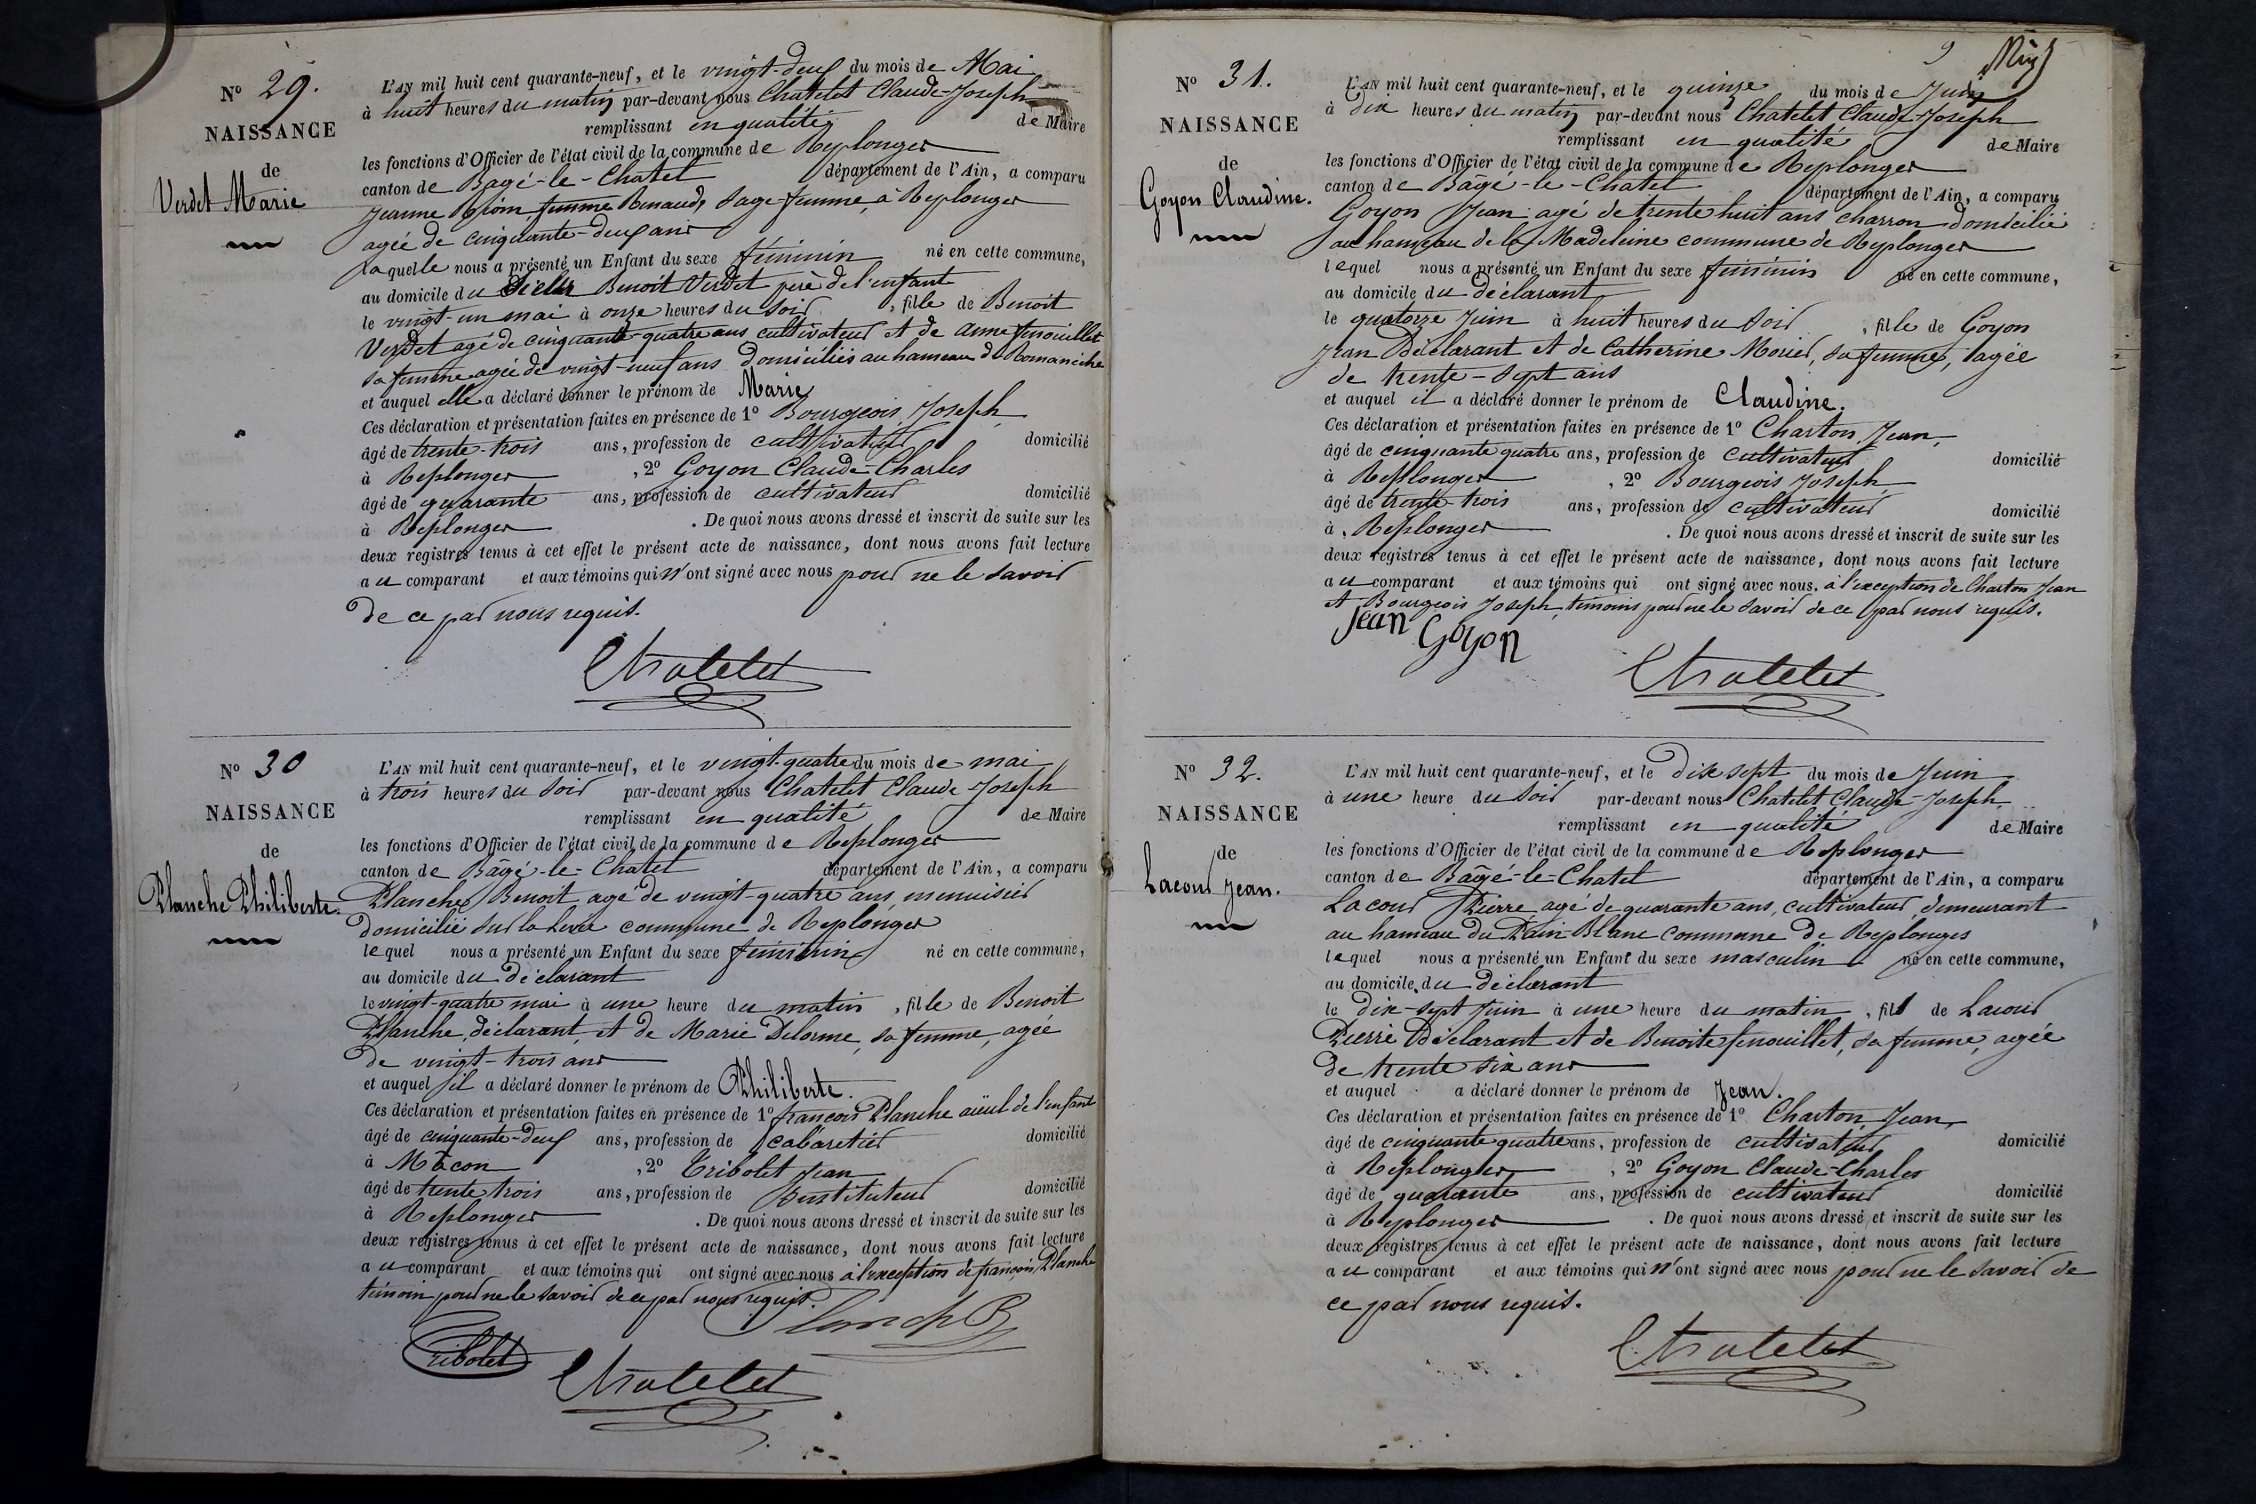 N° 29.
NAISSANCE
de
Verdet Marie
L'AN mil huit cent quarante-neuf, et le vingt-deux du mois de Mai
à huit heures du matin par-devant nous Chatelet Claude-Joseph
remplissant en qualité de Maire
les fonctions d'Officier de l'état civil de la commune de Replonges
canton de Bâgé-le-Chatel département de l'Ain, a comparu
Jeanne femme Renaud, Sage-femme, à Replonges
agée de cinquante-deux ans
laquelle nous a présenté un Enfant du sexe féminin né en cette commune,
au domicile du Benoit Verdet père de l'enfant
le vingt-un mai à onze heures du soir, fille de Benoit
Verdet agé de cinquante-quatre ans cultivateur et de Anne fenouillet
sa femme agée de vingt-neuf ans domiciliés au hameau de Romanèche
et auquel elle a déclaré donner le prénom de Marie
Ces déclaration et présentation faites en présence de 1° Bourgeois Joseph
âgé de trente-trois ans, profession de cultivateur domicilié
à Replonges, 2° Goyon Claude-Charles
âgé de quarante ans, profession de cultivateur domicilié
à Replonges. De quoi nous avons dressé et inscrit de suite sur les
deux registres tenus à cet effet le présent acte de naissance, dont nous avons fait lecture
au comparant et aux témoins qui n'ont signé avec nous pour ne le savoir
de ce par nous requis.
Chatelet
N° 30
NAISSANCE
de
Planche Philiberte.
L'AN mil huit cent quarante-neuf, et le vingt-quatre du mois de mai
à trois heures du soir par-devant nous Chatelet Claude Joseph
remplissant en qualité de Maire
les fonctions d'Officier de l'état civil de la commune de Replonges
canton de Bâgé-le-Chatel département de l'Ain, a comparu
Planche Benoit agé de vingt-quatre ans menuisier
domicilié sur la Levée commune de Replonges
lequel nous a présenté un Enfant du sexe féminin né en cette commune,
au domicile du déclarant
le vingt-quatre mai à une heure du matin, fille de Benoit
Planche, déclarant, et de Marie Delorme, sa femme, agée
de vingt-trois ans
et auquel il a déclaré donner le prénom de Philiberte.
Ces déclaration et présentation faites en présence de 1° françois Planche aïeul de l'enfant
âgé de cinquante-deux ans, profession de cabaretier domicilié
à Mâcon, 2° Tribolet Jean
âgé de trente trois ans, profession de Instituteur domicilié
à Replonges. De quoi nous avons dressé et inscrit de suite sur les
deux registres tenus à cet effet le présent acte de naissance, dont nous avons fait lecture
au comparant et aux témoins qui ont signé avec nous à l'exception de françois Planche
témoin pour ne le savoir de ce par nous requis.
Planche B
Tribolet
Chatelet
9
N° 31.
NAISSANCE
de
Goyon Claudine.
L'AN mil huit cent quarante-neuf, et le quinze du mois de Juin
à dix heures du matin par-devant nous Chatelet Claude-Joseph
remplissant en qualité de Maire
les fonctions d'Officier de l'état civil de la commune de Replonges
canton de Bâgé-le-Chatel département de l'Ain, a comparu
Goyon Jean agé de trente huit ans charron domicilié
au hameau de la Madeleine commune de Replonges
lequel nous a présenté un Enfant du sexe féminin né en cette commune,
au domicile du déclarant
le quatorze Juin à huit heures du soir, fille de Goyon
Jean Déclarant et de Catherine Morier, sa femme, agée
de trente-sept ans
et auquel il a déclaré donner le prénom de Claudine.
Ces déclaration et présentation faites en présence de 1° Charton Jean,
âgé de cinquante quatre ans, profession de cultivateur domicilié
à Replonges, 2° Bourgeois Joseph
âgé de trente trois ans, profession de cultivateur domicilié
à Replonges. De quoi nous avons dressé et inscrit de suite sur les
deux registres tenus à cet effet le présent acte de naissance, dont nous avons fait lecture
au comparant et aux témoins qui ont signé avec nous. à l'exception de Charton Jean
et Bourgeois Joseph, témoins pour ne le savoir de ce par nous requis.
Jean Goyon
Chatelet
N° 32.
NAISSANCE
de
Lacour Jean.
L'AN mil huit cent quarante-neuf, et le dix sept du mois de Juin
à une heure du soir par-devant nous Chatelet Claude-Joseph
remplissant en qualité de Maire
les fonctions d'Officier de l'état civil de la commune de Replonges
canton de Bâgé-le-Chatel département de l'Ain, a comparu
Lacour Pierre agé de quarante ans, cultivateur, demeurant
au hameau du Pain-Blanc commune de Replonges
lequel nous a présenté un Enfant du sexe masculin né en cette commune,
au domicile du déclarant
le dix-sept Juin à une heure du matin, fils de Lacour
Pierre Déclarant et de Benoite fenouillet, sa femme, agée
de trente six ans
et auquel a déclaré donner le prénom de Jean.
Ces déclaration et présentation faites en présence de 1° Charton Jean,
âgé de cinquante quatre ans, profession de cultivateur domicilié
à Replonges, 2° Goyon Claude-Charles
âgé de quarante ans, profession de cultivateur domicilié
à Replonges. De quoi nous avons dressé et inscrit de suite sur les
deux registres tenus à cet effet le présent acte de naissance, dont nous avons fait lecture
au comparant et aux témoins qui n'ont signé avec nous pour ne le savoir de
ce par nous requis.
Chatelet